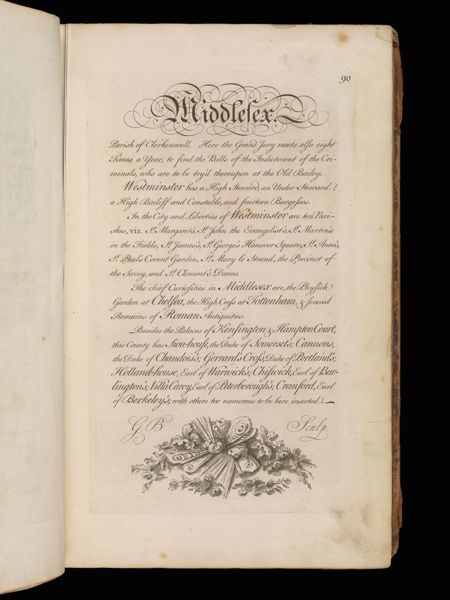 90
Middlesex.
Parish of Clerkenwell. Here the Grand Jury meets also eight
Times a Year, to find the Bills of the Indictment of the Cri-
minals, who are to be try'd thereupon at the Old Bailey.
Westminster has a High Steward, an Under Steward,
a High Bailiff and Constable, and fourteen Burgesses.
In the City and Liberties of Westminster are ten Pari-
shes, viz. St. Margaret's, St. John the Evangelist's, St. Martin's
in the Fields, St. James's, St. George's Hanover Square, St. Ann's,
St. Paul's Covent Garden, St. Mary le Strand, the Precinct of
the Savoy, and St. Clement's Danes.
The chief Curiosities in Middlesex are, the Physick
Garden at Chelsea, the High Cross at Tottenham, & several
Remains of Roman Antiquities.
Besides the Palaces of Kensington & Hampton Court,
this County has Sion-house, the Duke of Somerset's; Cannons,
the Duke of Chandois's; Gerrard's Cross, Duke of Portland's;
Holland-house, Earl of Warwick's; Chiswick, Earl of Bur-
lington's; Villa Carey, Earl of Peterborough's; Cranford, Earl
of Berkeley's; with others too numerous to be here inserted.
G B Sculp.